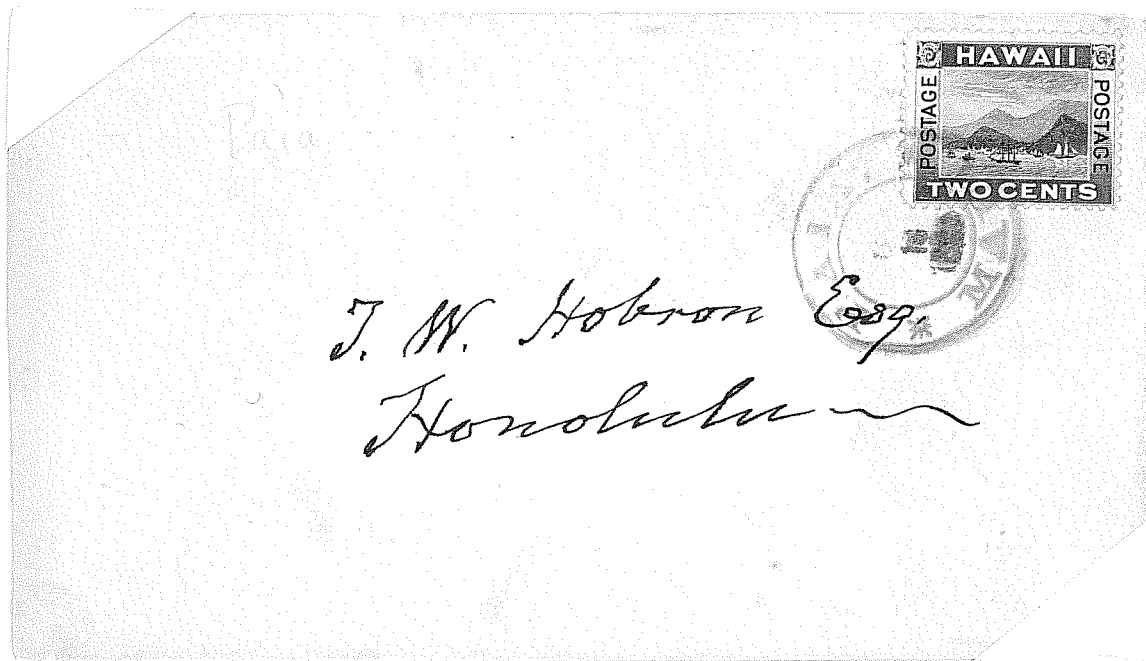 HAWAII
POSTAGE
POSTAGE
TWO CENTS
T. W. Hobron Esq.
Honolulu